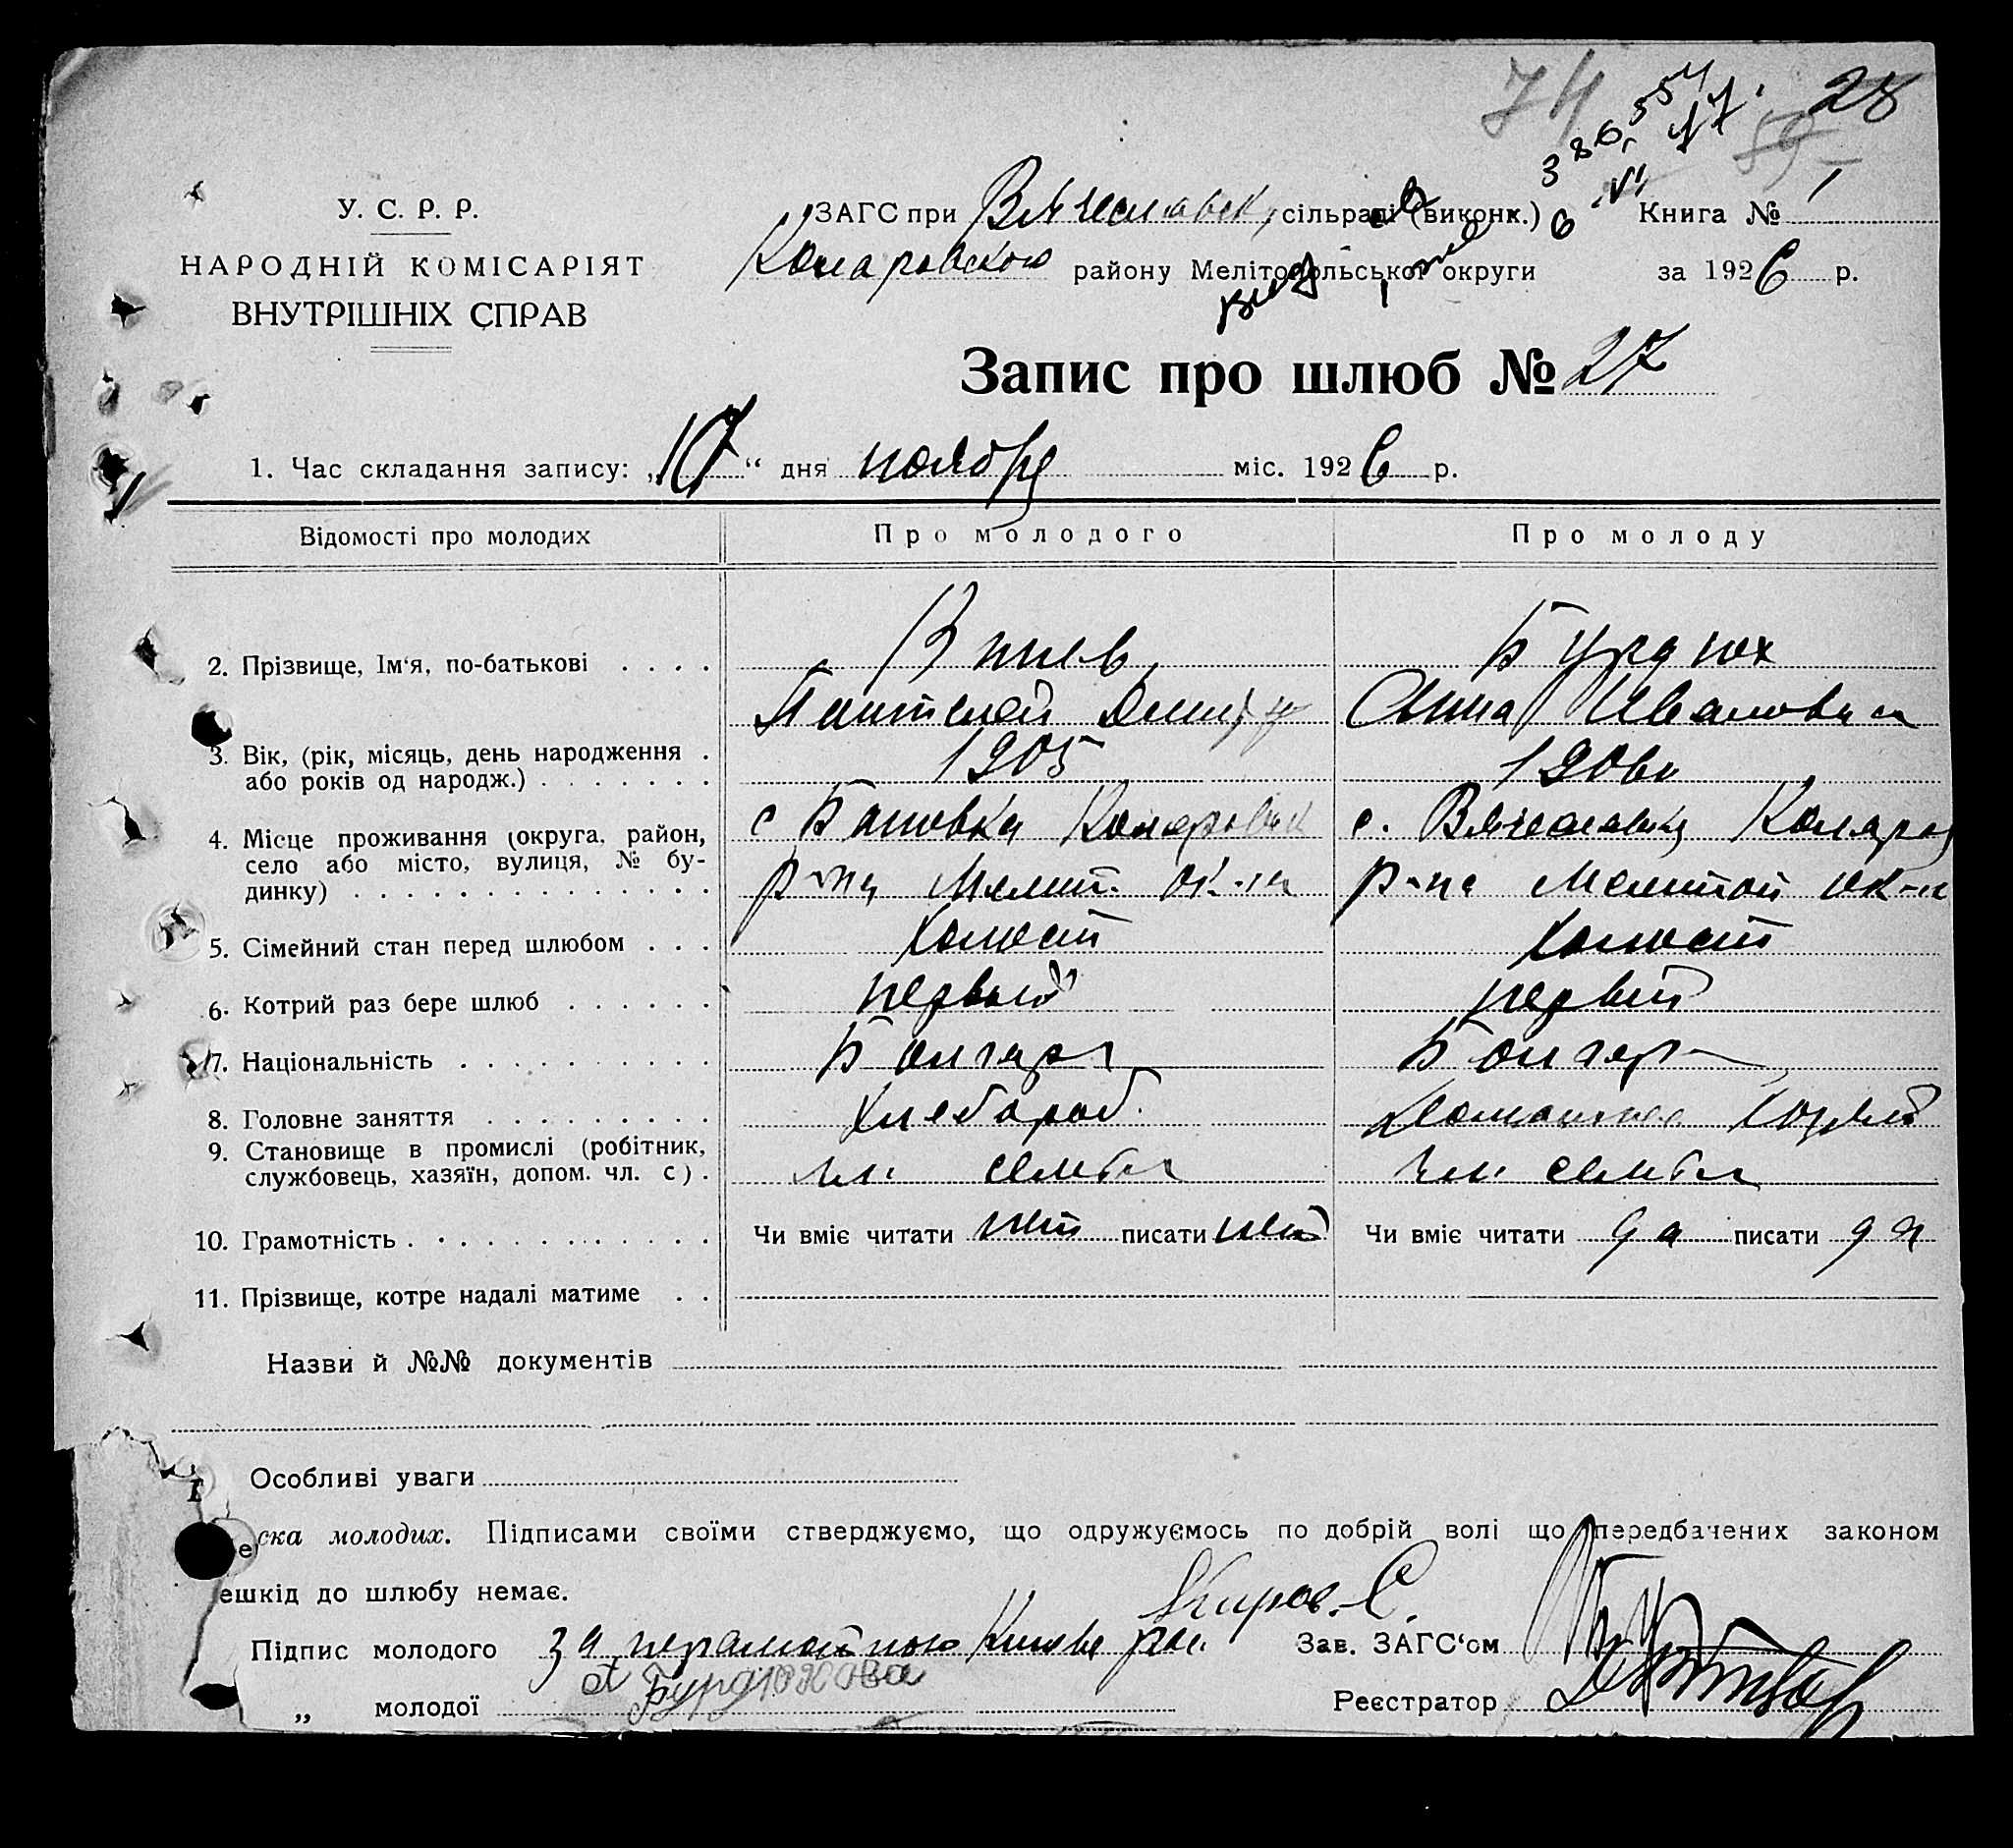 74 28
386554
У. С. Р. Р.
НАРОДНІЙ КОМІСАРІЯТ
ВНУТРІШНІХ СПРАВ
ЗАГС при Вячеславск. сільраді (виконк.) Книга № 1
Комаровского району Мелітопольської округи за 1926 р.
Запис про шлюб № 27
1. Час складання запису: „17“ дня ноября міс. 1926 р.
Відомості про молодих Про молодого Про молоду
2. Прізвище, Ім‘я, по-батькові . . . . Бурдюх
Пантелей Дмитр Анна Ивановна
3. Вік, (рік, місяць, день народження . 1905
або років од народж.) . . . . . . . 1906
4. Місце проживання (округа, район, с Бановка Комаровск с. Вячеславка Комаров
село або місто, вулиця, № бу- р-на Мелит. ок-ги р-на Мелитоп ок-ги
динку) . . . . . . . . . . . . . .
5. Сімейний стан перед шлюбом . . . Холост Холост
6. Котрий раз бере шлюб . . . . . . первый первый
7. Національність . . . . . . . . . Болгар Болгар
8. Головне заняття . . . . . . . . . Хлебороб. Домашнее
9. Становище в промислі (робітник, чл. семьи чл. семьи
службовець, хазяїн, допом. чл. с) .
10. Грамотність . . . . . . . . . . . Чи вміє читати нет писати нет Чи вміє читати да писати да
11. Прізвище, котре надалі матиме . .
Назви й №№ документів
Особливі уваги
ска молодих. Підписами своїми стверджуємо, що одружуємось по добрій волі що передбачених законом
ешкід до шлюбу немає.
Підпис молодого За неграмотного рас. Зав. ЗАГС‘ом
„ молодої А Бурдюхова Реєстратор